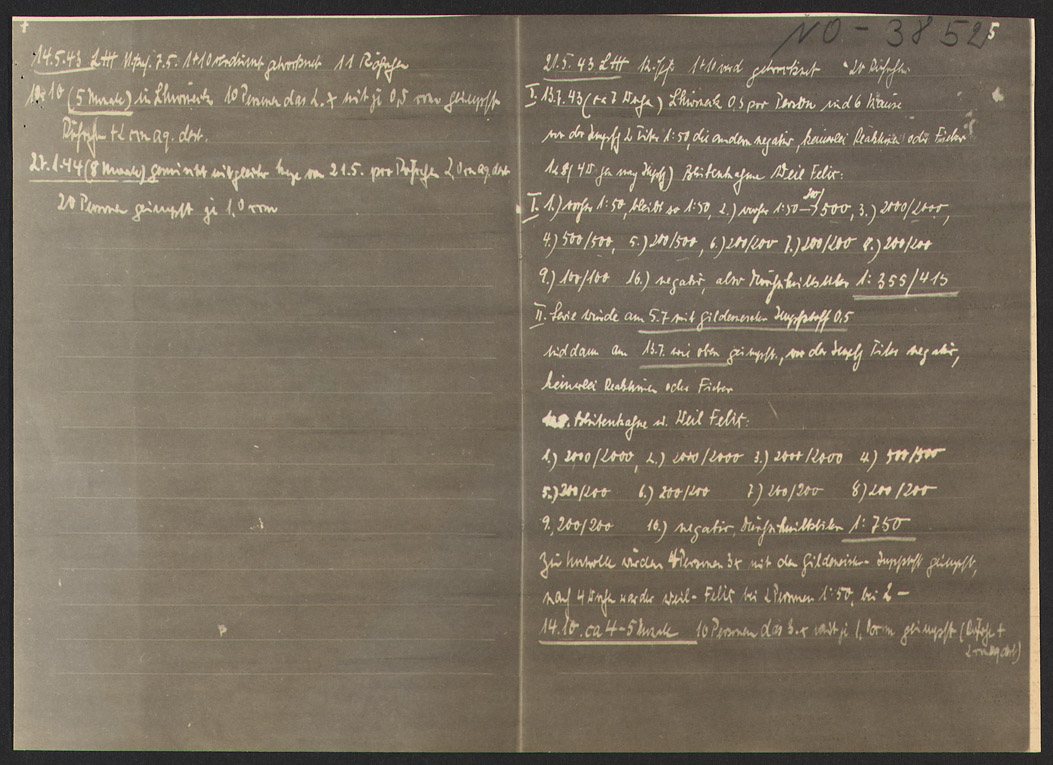 NO - 3852
5
14.5.43 1+10 verdünnt getrocknet 11 Röhrchen
10.10 (5 Monate) in 10 Personen das 2. x mit je 0,5 ccm geimpft
Röhrchen + 2 ccm aq. dest.
27.1.44 (8 Monate) von 21.5. pro Röhrchen 2,0 ccm aq. dest.
20 Personen geimpft je 1,0 ccm
21.5.43 1+10 verd getrocknet 20 Röhrchen
I. 13.7.43 (ca 7 Woche) 0,5 pro Person und 6 Mäuse
vor der Impfg 2 Titer 1:50, die andern negativ, keinerlei Reaktionen oder Fieber
Blutentnahme Weil Felix:
I. 1.) vorher 1:50, bleibt so 1:50, 2.) vorher 1:50 → 500, 3.) 2000/2000,
4.) 500/500, 5.) 200/500, 6.) 200/200 7.) 200/200 8.) 200/200
9.) 100/100 10.) negativ, also Durchschnittstiter 1:355/413
II. Serie wurde am 5.7 mit Gildemeister Impfstoff 0,5
und dann am 13.7. wie oben geimpft, vor der Impfg Titer negativ,
keinerlei Reaktionen oder Fieber
Blutentnahme u. Weil Felix:
1.) 2000/2000, 2.) 2000/2000 3.) 2000/2000 4.) 500/500
5.) 200/200 6.) 200/200 7.) 200/200 8) 200/200
9. 200/200 10.) negativ, Durchschnittstiter 1:750
Zur Kontrolle wurden 4 Personen 3x mit dem Gildemeister Impfstoff geimpft,
nach 4 Wochen war der Weil-Felix bei 2 Personen 1:50, bei 2 –
14.10. ca 4-5 Monate 10 Personen das 3. x mit je 1,0 ccm geimpft (Röhrch +
2 ccm aq dest)